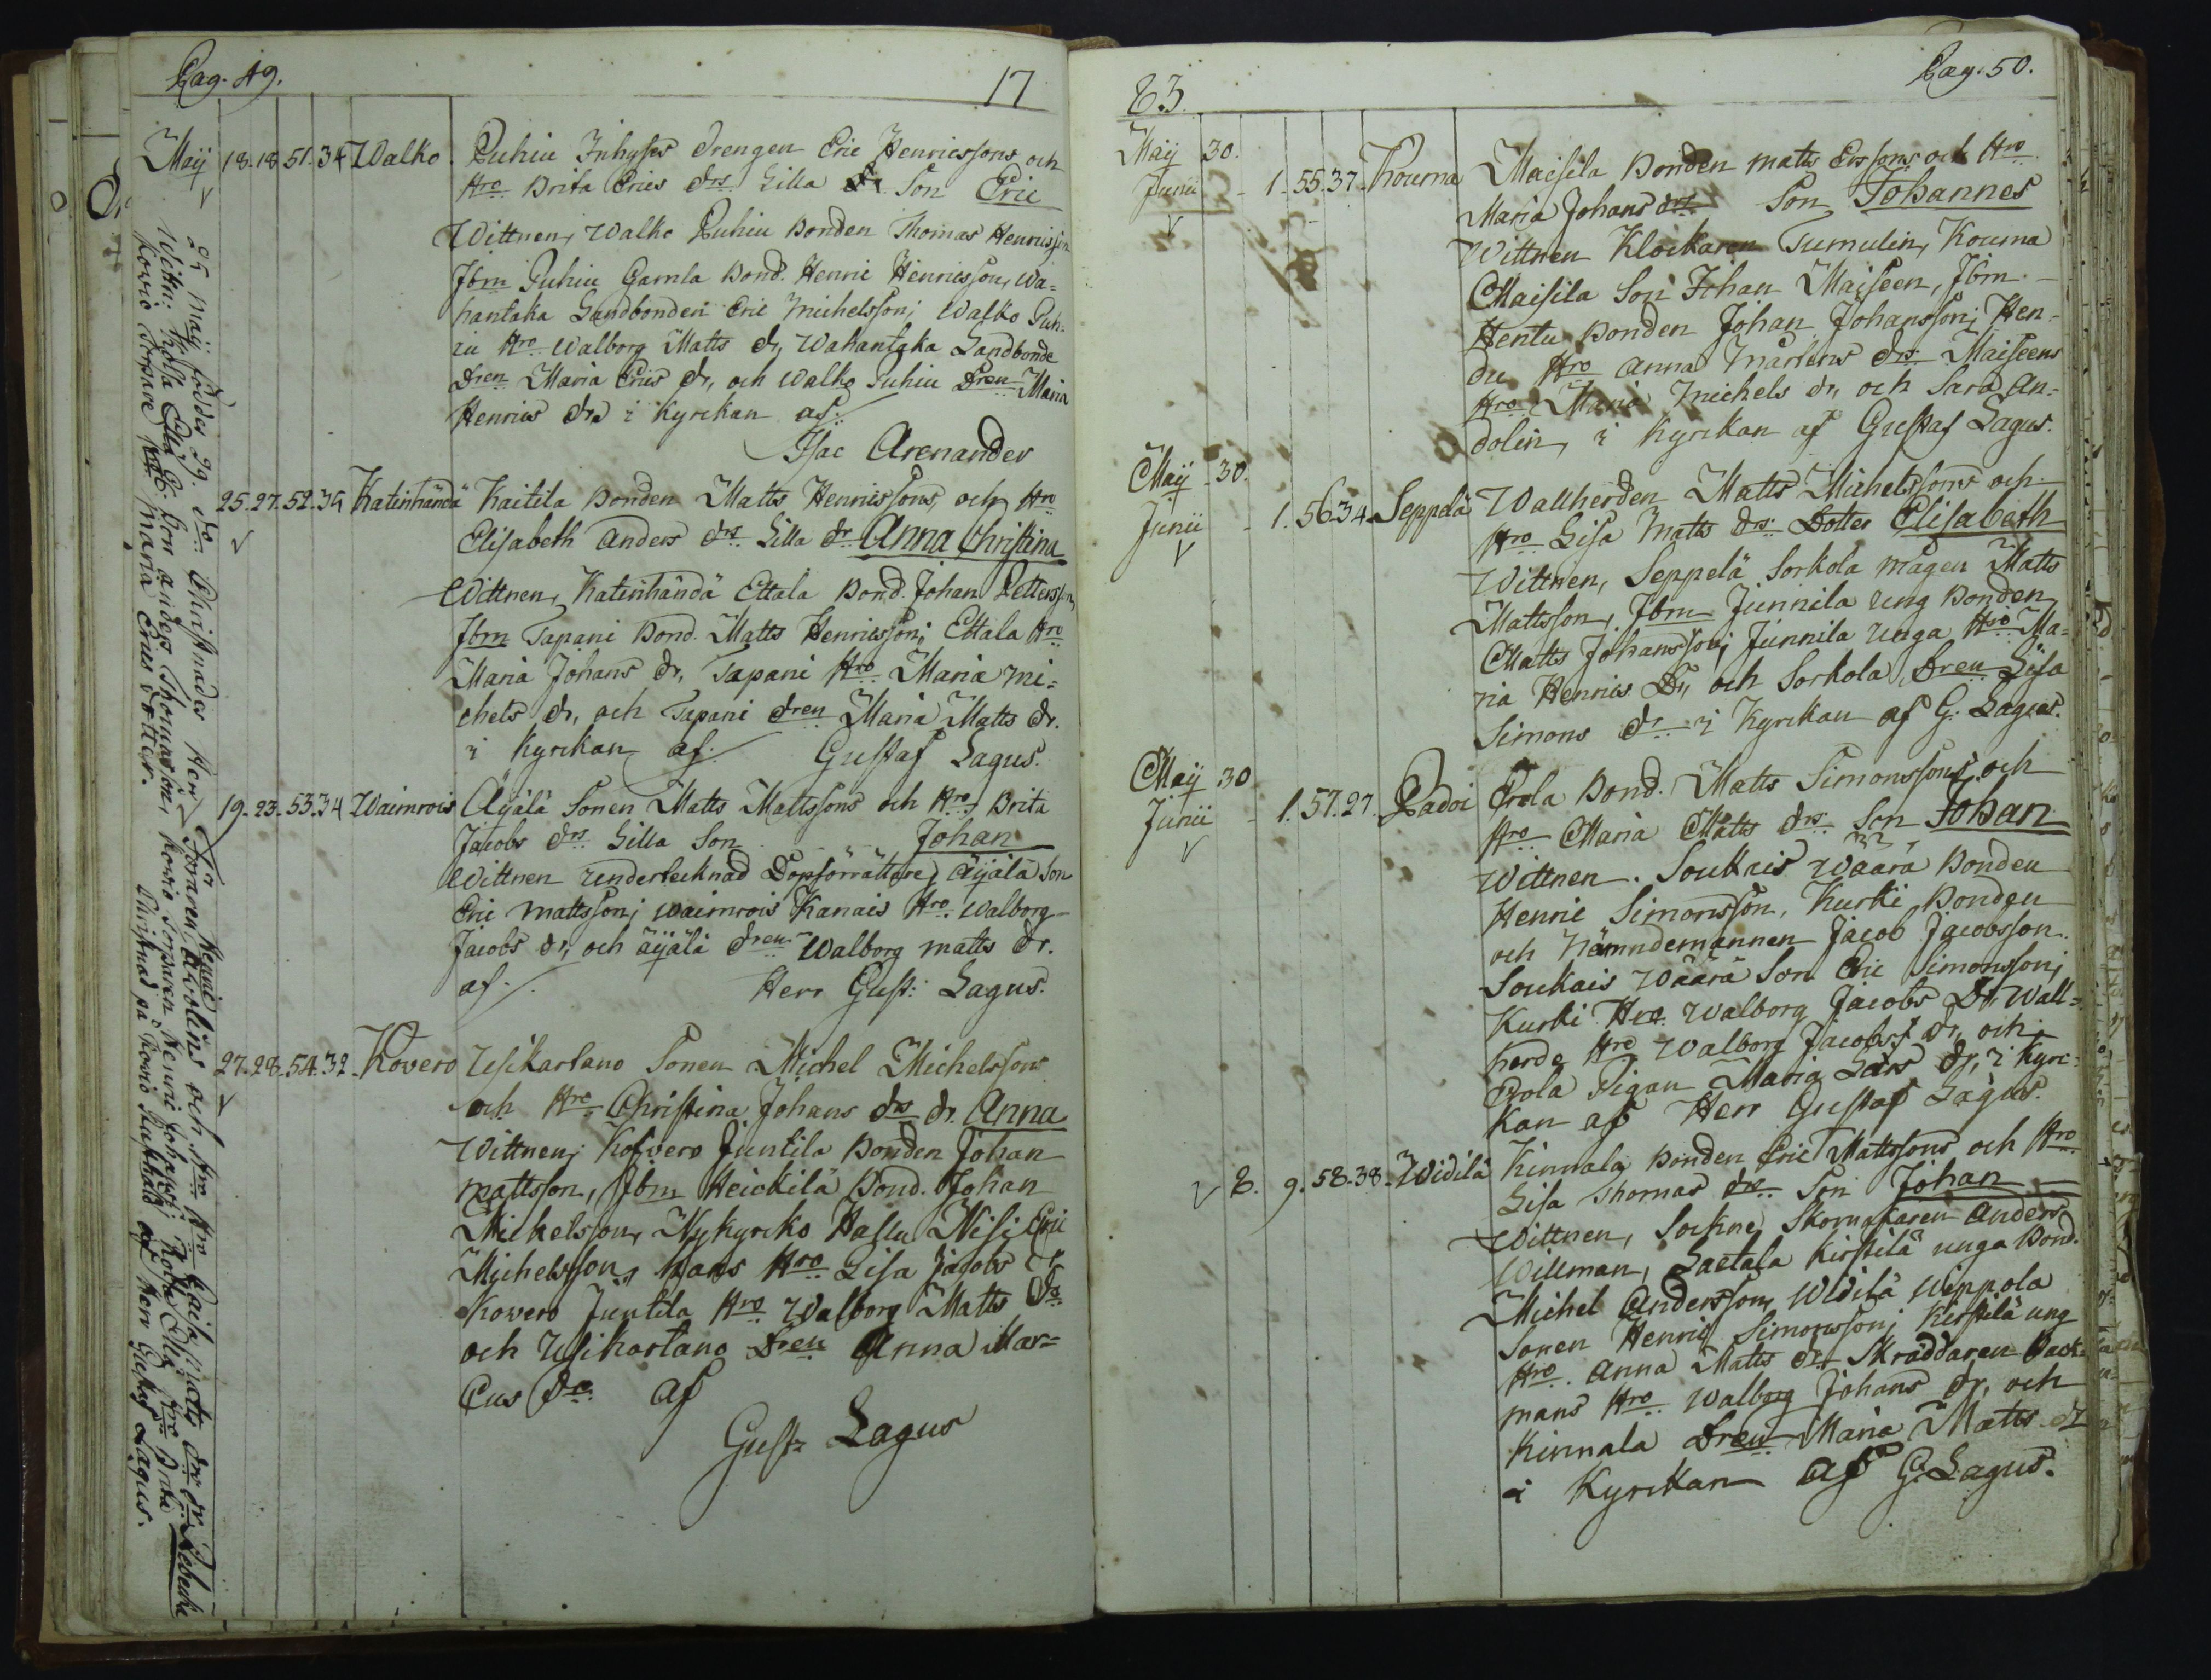 Pag. 49. 17
Maÿ 18.18.51.34 Walko. Puhiu Inhyses drengen Eric Henricssons och
Hro Brita Erics drs Lilla Son Eric
Wittnen, Walko Puhiu Bonden Thomas Henricsson
Jbm Puhiu Gamla Bond. Henric Henricsson, Wa=
hantaka Landbonden Eric Michelsson; Walko Puh-
iu Hro Walborg Matts dr, Wahantaka Landbonde
dren Maria Erics dr, och Walko Puhiu Dren Maria
Henrics dr i Kyrckan af
Isac Arenander
25.27.52.35 Katinhändä Kaitila Bonden Matts Henricssons, och Hro
Elisabeth Anders drs Lilla dr Anna Christina
Wittnen, Katinhändä Ettala Bond. Johan Pettersson,
Jbm Tapani Bond. Matts Henricsson; Ettala Hro
Maria Johans dr, Tapani Hro Maria Mi=
chels dr, och Tapani dren Maria Matts dr.
i Kyrckan af. Gustaf Lagus.
19.23.53.34 Waimrois Äÿälä Sonen Matts Mattssons och Hro Brita
Jacobs drs Lilla Son Johan
Wittnen Undertecknad Dopförrättare, Äÿälä Son
Eric Mattsson; Waimrois Kanais Hro Walborg
Jacobs dr, och Äÿälä dren Walborg Matts dr.
af. Herr Gust: Lagus.
27.28.54.32 Kovero Usikartano Sonen Michel Michelssons
och Hro Christina Johans drs dr. Anna
Wittnen; Kofvero Juntila Bonden Johan
Mattsson, Jbm Heickilä Bond. Johan
Mickelsson, Nykyrcko Hallu Nisi Eric
Michelsson, hans Hro Lisa Jacobs dr
Kovero Juntila Hro Walborg Matts dr
och Usikartano Dren Anna Mar=
cus dr. af
Gust: Lagus
25 Maÿ föddes 29. do Christnades Henric Henric Hro Caisa Matts drs dr. Rebecka
Wittn: Kolla Anders Thomasson, Henric Johanss: Kolla Hro Brita
Maria Erics dotter. Christnad på af Herr Gustaf Lagus.
83. Pag. 50.
Maÿ 30.
Junii 1.55.37. Kouma Maisila Bonden Matts Erssons och Hro
Maria Johans drs Son Johannes
Wittnen Klockaren Tumulin, Kouma
Maisila Son Johan Maiseen, Jbm
Hentu Bonden Johan Johansson; Hen-
du Hro Anna Mårtens dr. Maiseens
Hro Maria Michels dr, och Sara An-
dolin, i Kyrckan af Gustaf Lagus.
Maÿ 30.
Junii 1.56.34. Seppelä Wallherden Matts Michelssons och
Hro Lisa Matts drs Dotter Elisabeth
Wittnen, Seppelä Sorkola mågen Matts
Mattsson, Jbm Junnila Ung Bonden
Matts Johansson; Junnila Unga Hro Ma=
ria Henrics Dr, och Sorkola Dren Lisa
Simons dr i Kyrckan af G: Lagus.
Maÿ 30
Junii 1.57.27. Padoi Erola Bond. Matts Simonssons och
Hro Maria Matts drs Son Johan
Wittnen. Soukais Wäärä Bonden
Henric Simonsson, Kurki Bonden
och Nämndemannen Jacob Jacobsson.
Soukais Wäärä Son Eric Simonsson;
Kurki Hro Walborg Jacobs Dr, Wall=
herde Hro Walborg Jacobs dr, och
Erola Pigan Maria Lars dr, i Kyrc-
kan af Herr Gustaf Lagus.
8. 9.58.38. Widilä Kinnala Bonden Eric Mattssons och Hro
Lisa Thomas drs Son Johan
Wittnen, Sockne Skomakaren Anders
Willman, Laetala Kirstilä unga Bond.
Michel Andersson, Widilä Wippola
Sonen Henric Simonsson; Kirstilä ung
Hro. Anna Matts dr Skräddaren Back-
mans Hro Walborg Johans dr, och
Kinnala Dren Maria Matts dr
i Kyrckan af G. Lagus.